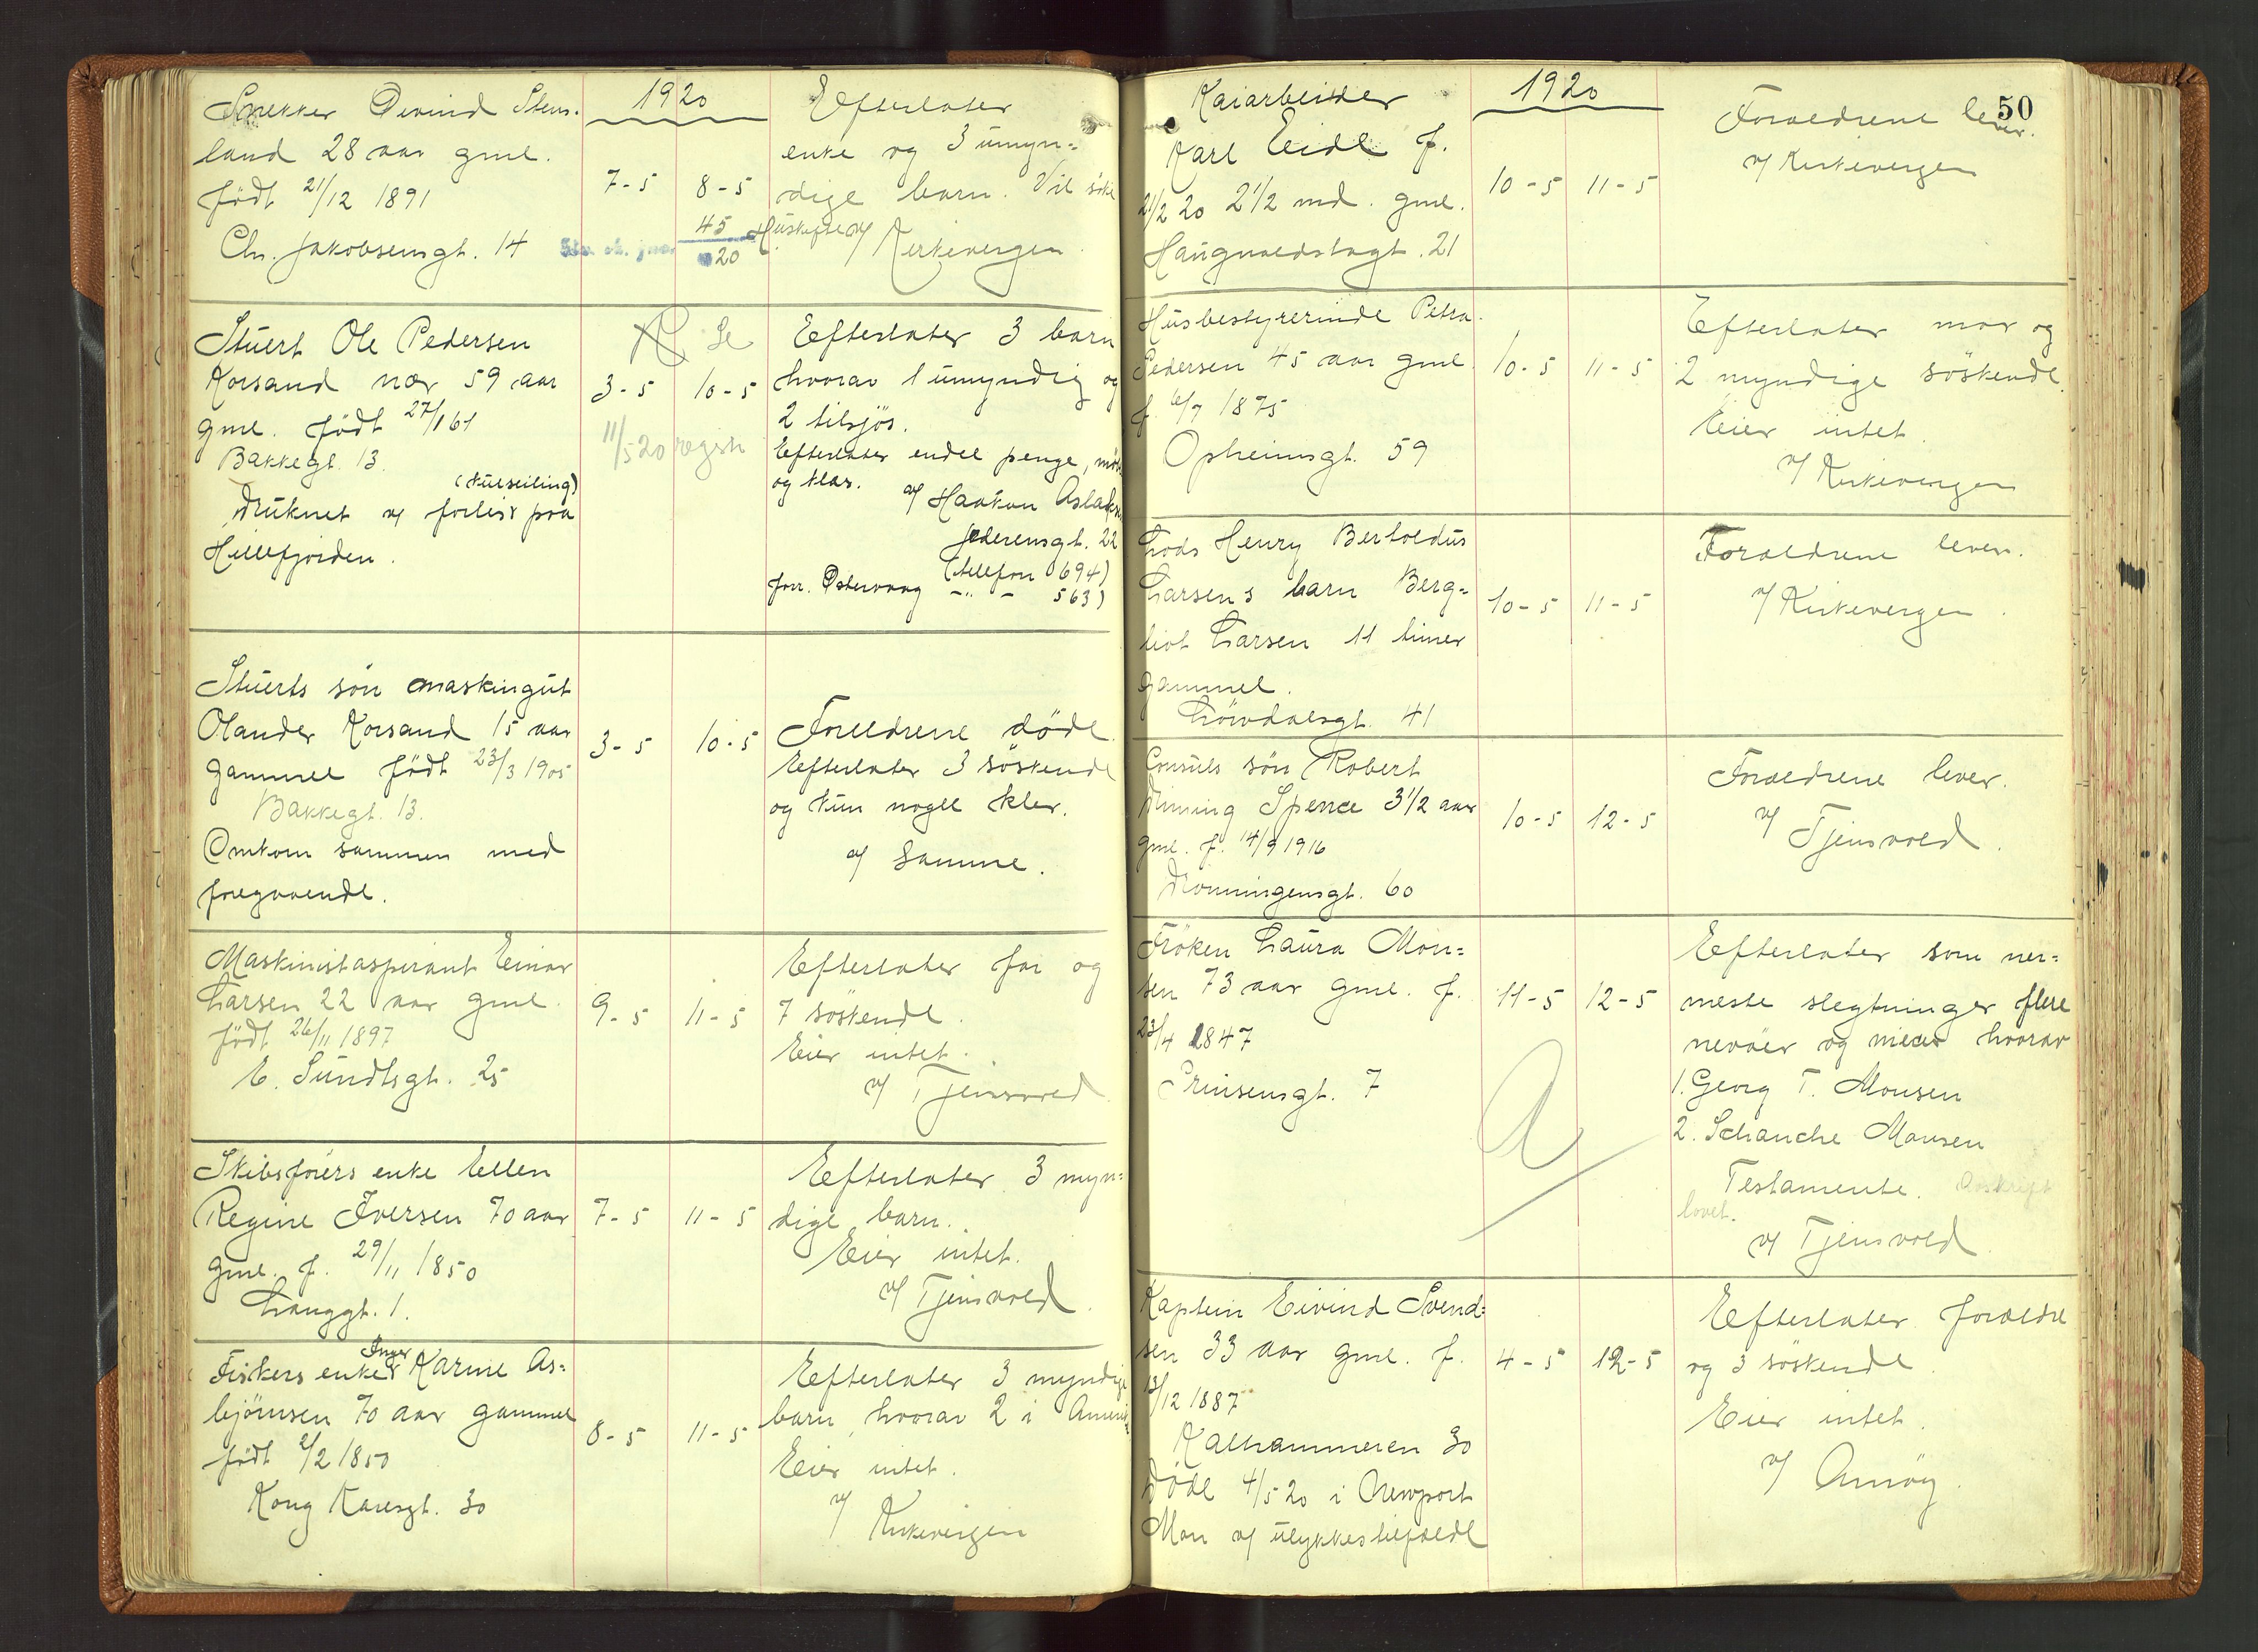 1920
Snekker Øivind Stens-
land 28 aar gml.
født 21/12 1891
Chr. Jakobsensgt. 14
7-5 8-5
45
20
Efterlater
enke og 3 umyn-
dige barn. Vil söke
Huskifte
v/ Kirkevergen
Stuert Ole Pedersen
Korsand nær 59 aar
gml. født 27/1 61
Bakkegt. 13.
(kulseiling)
Druknet v/ forlis paa
Hillefjorden.
Se
3-5 10-5
11/5 20 registr
Efterlater 3 barn
hvorav 1 umyndig og
2 tilsjös.
Efterlater endel penge,
og klær.
v/ Haakon Aslaksen
Jederensgt. 22
(telefon 694)
forr. Østervaag -"- 563)
Stuerts sön maskingut
Olander Korsand 15 aar
gammel født 23/3 1905
Bakkegt. 13.
Omkom sammen med
foregaaende.
3-5 10-5
Foreldrene döde
Efterlater 3 söskende
og kun nogle kler.
v/ Samme.
Maskinistaspirant Einar
Larsen 22 aar gml.
født 26/11 1897
E. Sundtsgt. 25
9-5 11-5
Efterlater far og
7 söskende.
Eier intet.
v/ Tjensvold
Skibsförers enke Ellen
Regine Iversen 70 aar
gml. f. 29/11 1850
Langgt. 1.
7-5 11-5
Efterlater 3 myn-
dige barn.
Eier intet.
v/ Tjensvold.
Inger
Fiskers enke Karine As-
björnsen 70 aar gammel
født 2/2 1850
Kong Karlsgt. 30
8-5 11-5
Efterlater 3 myndige
barn, hvorav 2 i Amerik
Eier intet.
v/ Kirkevergen
50
1920
Kaiarbeider
Karl Eide f.
21/2 20 2 1/2 md. gml.
Haugvaldstagt. 21
10-5 11-5
Foraeldrene lever.
v/ Kirkevergen
Husbestyrerinde Petra
Pedersen 45 aar gml.
f. 6/7 1875
Opheimsgt. 59
10-5 11-5
Efterlater mor og
2 myndige söskende.
Eier intet.
v/ Kirkevergen
Lods Henry Bertoldus
Larsens barn Berg-
liot Larsen 11 timer
gammel.
Lövdalsgt. 41
10-5 11-5
Foraeldrene lever.
v/ Kirkevergen.
Consuls sön Robert
Dinning Spence 3 1/2 aar
gml. f. 14/9 1916
Dronningensgt. 60
10-5 12-5
Foraeldrene lever.
v/ Tjensvold.
Fröken Laura Mon-
sen 73 aar gml. f.
23/4 1847
Prinsensgt. 7
11-5 12-5
Efterlater som ner-
meste slegtninger flere
nevöer og niecer hvorav
1. Georg T. Monsen
2. Schanche Monsen
Testamente. Avskrift
lovet.
v/ Tjensvold.
Kaptein Eivind Svend-
sen 33 aar gml. f.
13/12 1887
Kalhammeren 30
Döde 4/5 20 i Newport
Mon v/ ulykkestilfælde
4-5 12-5
Efterlater foraeldre
og 3 söskende.
Eier intet.
v/ Amöy.